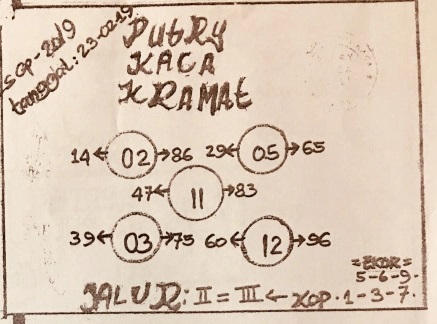 SGP-2019
tanggal: 23-02-19
PUBRY
KACA
KRAMAt
14 ← 02 → 86 29 ← 05 → 65
47 ← 11 → 83
39 ← 03 → 75 60 ← 12 → 96
=EKOR=
5-6-9-
JALUR: II = III ← KOP. 1-3-7.